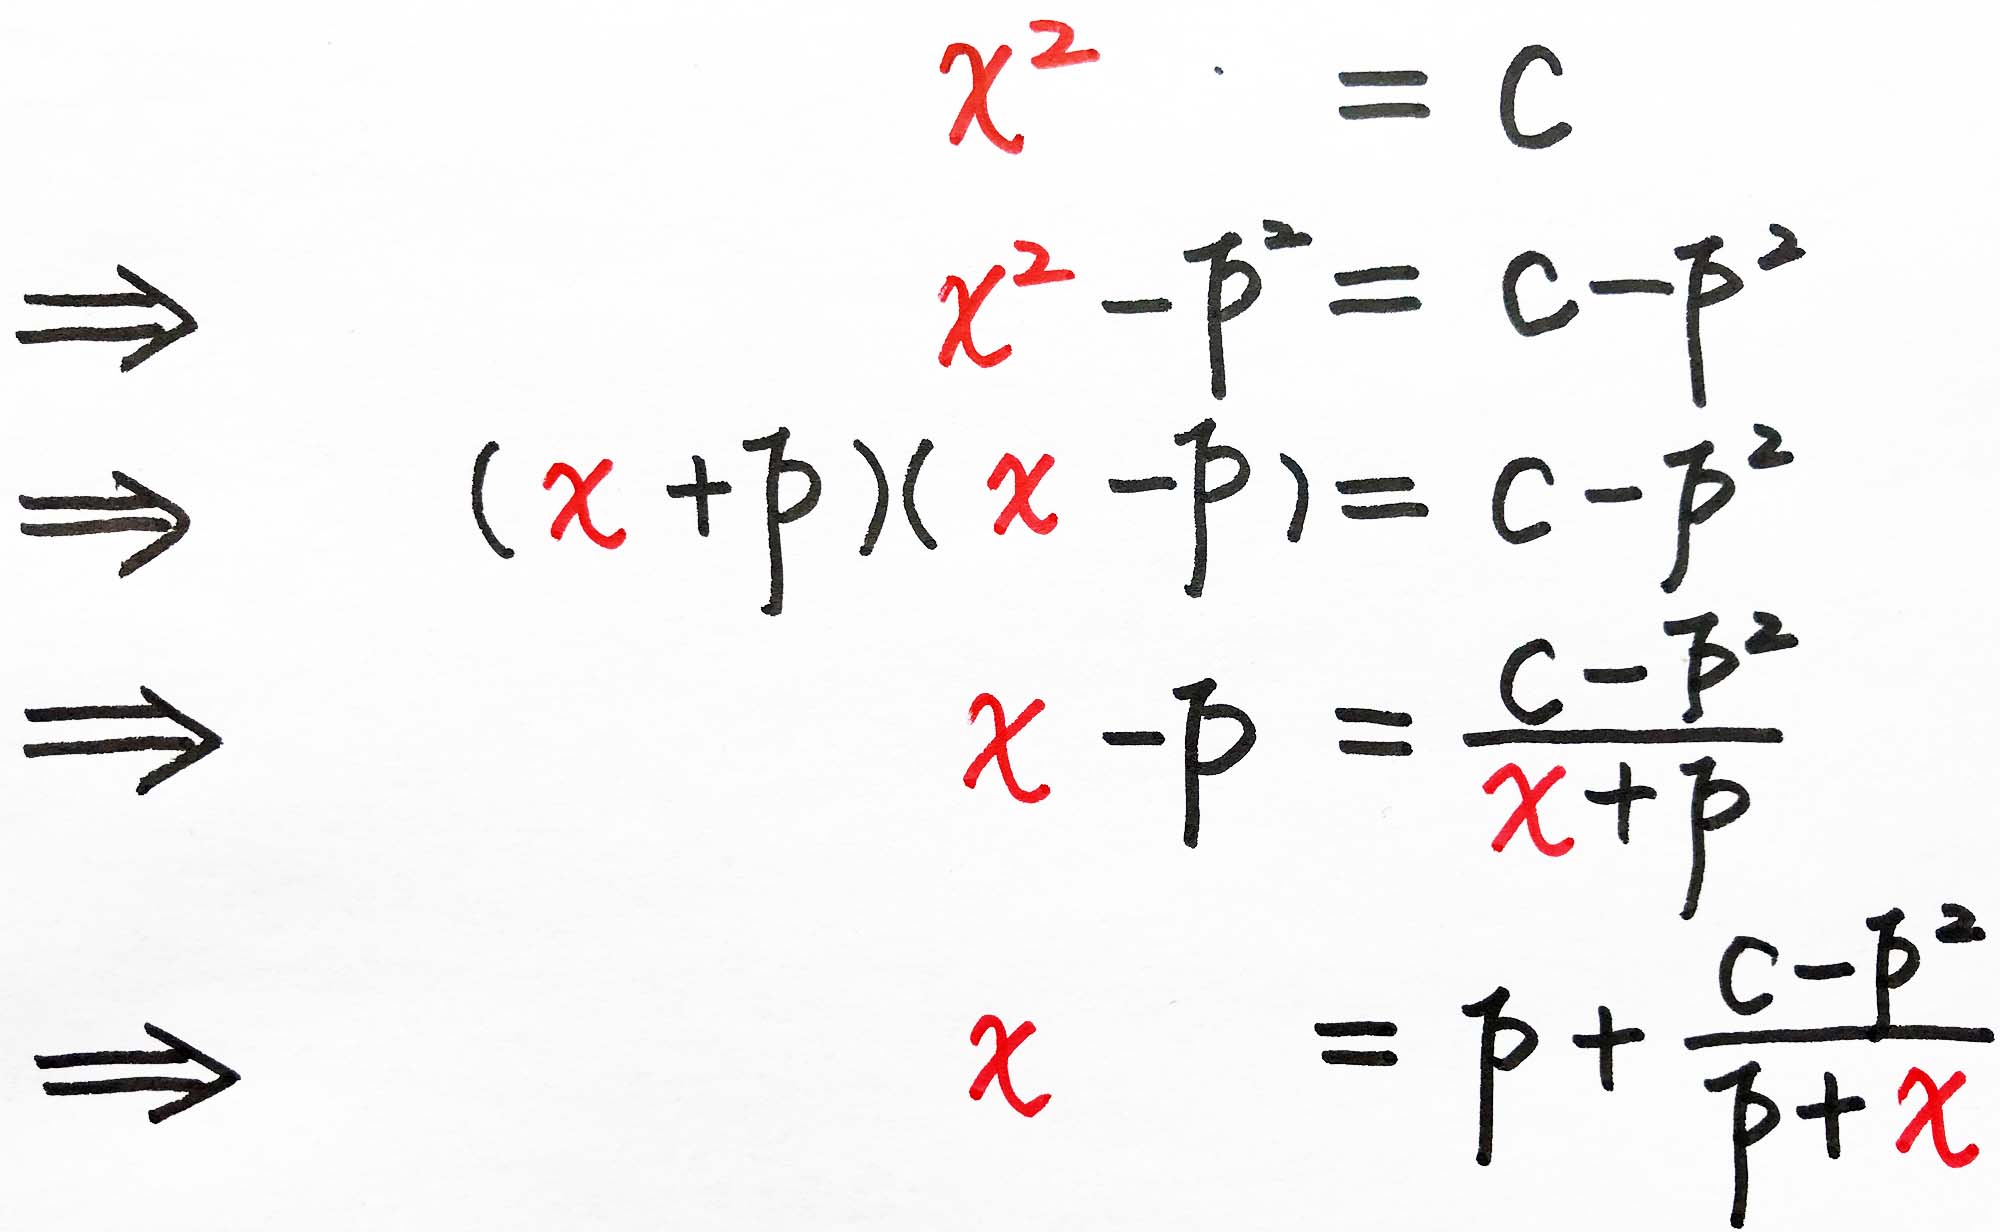 x² = c
⇒ x² - p² = c - p²
⇒ (x + p)(x - p) = c - p²
⇒ x - p = (c - p²)/(x + p)
⇒ x = p + (c - p²)/(p + x)